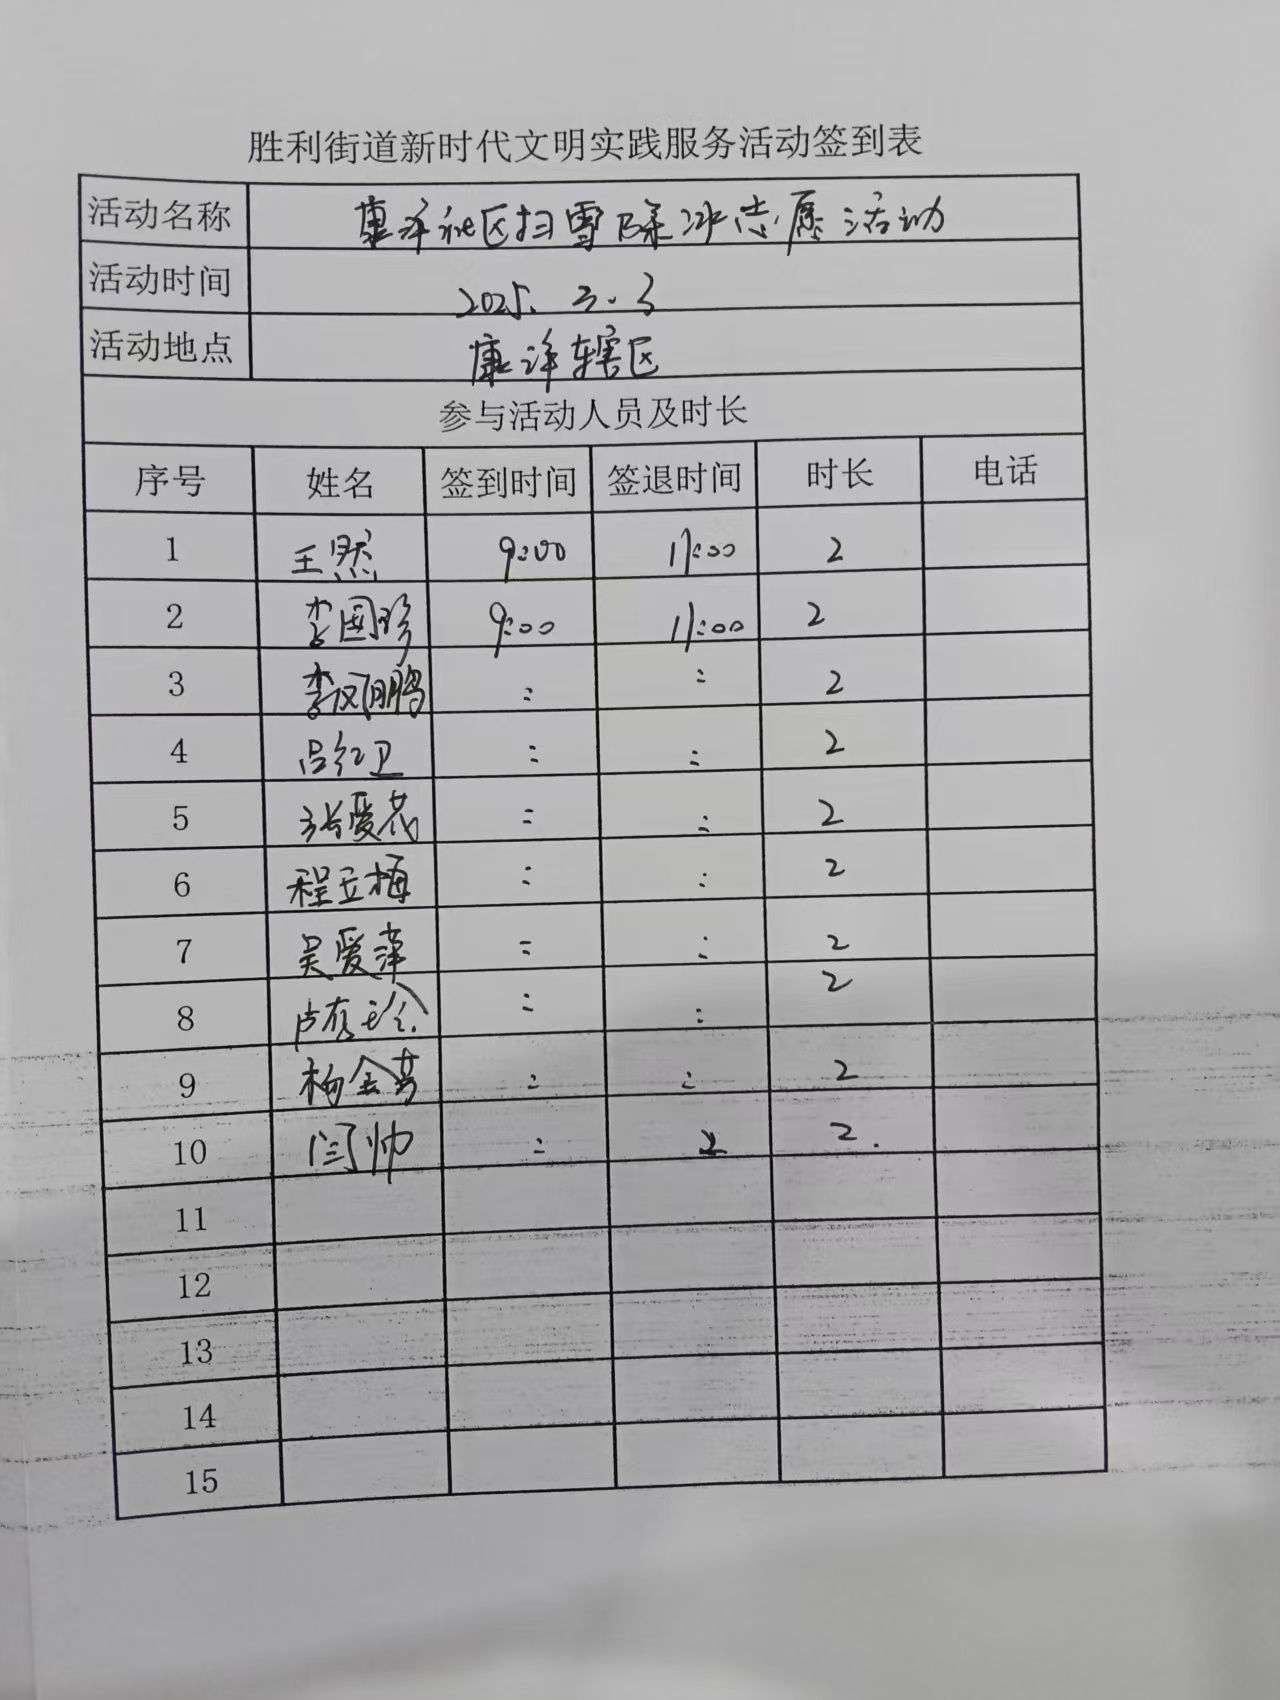 胜利街道新时代文明实践服务活动签到表
活动名称 康泽社区扫雪除冰志愿活动
活动时间 2025. 3. 3
活动地点 康泽辖区
参与活动人员及时长
序号 姓名 签到时间 签退时间 时长 电话
1 王然 9:00 11:00 2
2 李国珍 9:00 11:00 2
3 李凤鹏 : : 2
4 吕红卫 : : 2
5 张爱花 : : 2
6 程立梅 : : 2
7 吴爱萍 : : 2
8 卢存珍 : : 2
9 杨金芳 : : 2
10 闫帅 : : 2.
11
12
13
14
15